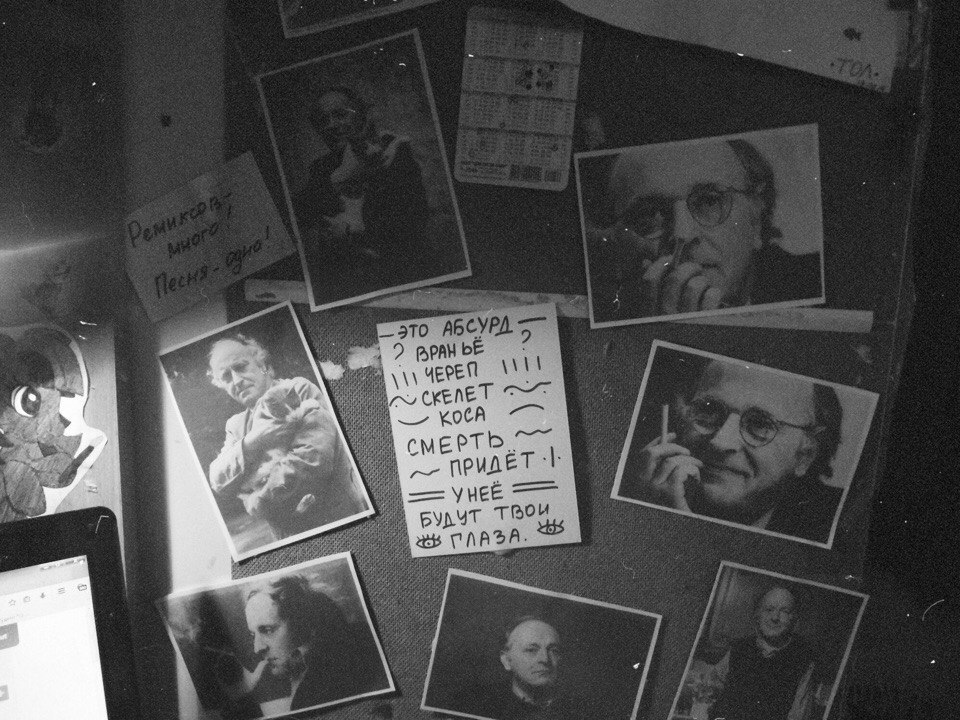 ·ТОЛ·
Ремиксов-
много!
Песня-одна!
— ЭТО АБСУРД —
? ВРАНЬЁ ?
ııı ЧЕРЕП ıııı
~ СКЕЛЕТ ~
КОСА
СМЕРТЬ ~
~ ПРИДЁТ ·|·
= У НЕЁ =
БУДУТ ТВОИ
ГЛАЗА.